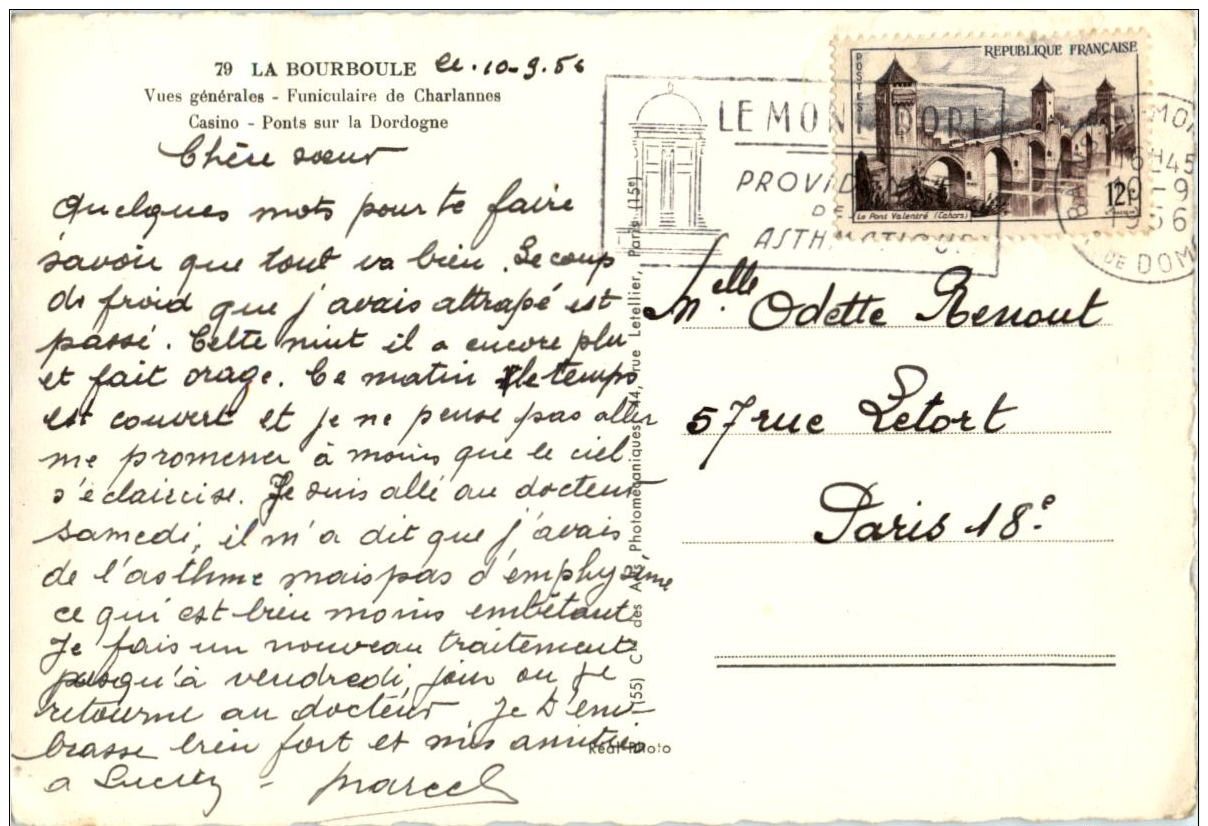 79 LA BOURBOULE le. 10-9.56
Vues générales - Funiculaire de Charlannes
Casino - Ponts sur la Dordogne
Chère sœur
Quelques mots pour te faire
savoir que tout va bien. Le coup
de froid que j'avais attrapé est
passé. Cette nuit il a encore plu
et fait orage. Ce matin le temps
est couvert et je ne pense pas aller
me promener à moins que le ciel
s'éclaircise. Je suis allé au docteur
samedi, il m'a dit que j'avais
de l'asthme mais pas d'emphysème
ce qui est bien moins embêtant
Je fais un nouveau traitement
jusqu'à vendredi, jour ou je
retourne au docteur. Je t'em-
brasse bien fort et mes amitiés
a
marcel
(55) Cie des Arts Photomécaniques, 44, rue Letellier, Paris (15e)
Réal-Photo
REPUBLIQUE FRANÇAISE
POSTES
12F
Le Pont Valentré (Cahors)
LE MONT DORE
PROVIDENCE
DES
ASTHMATIQUES
16H45
10-9
1956
DE DOME
Melle Odette Renout
57 rue Letort
Paris 18e